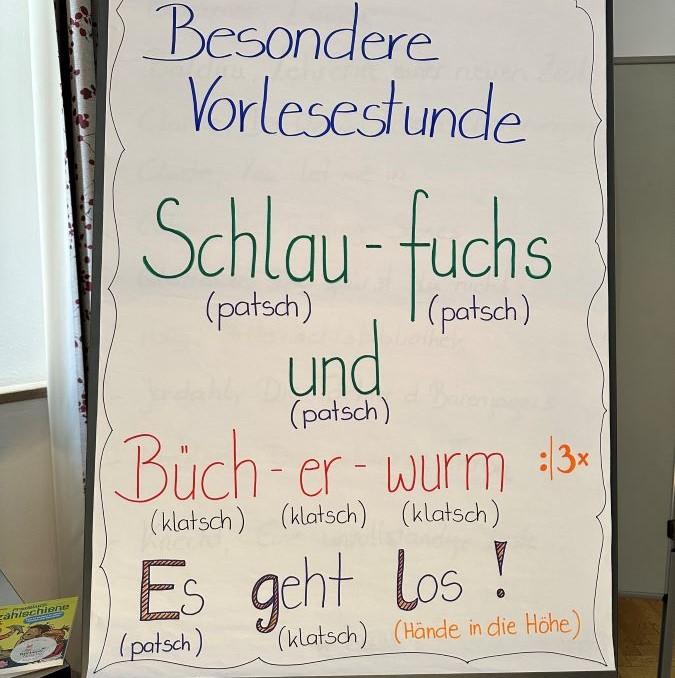 Besondere
Vorlesestunde
Schlau - fuchs
(patsch) (patsch)
und
(patsch)
Büch - er - wurm :| 3x
(klatsch) (klatsch) (klatsch)
Es geht los !
(patsch) (klatsch) (Hände in die Höhe)